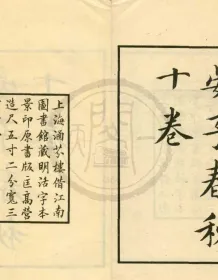 晏子春秋
十卷
上海涵芬樓借江南
圖書館藏明活字本
景印原書版匡高營
造尺五寸二分寬三